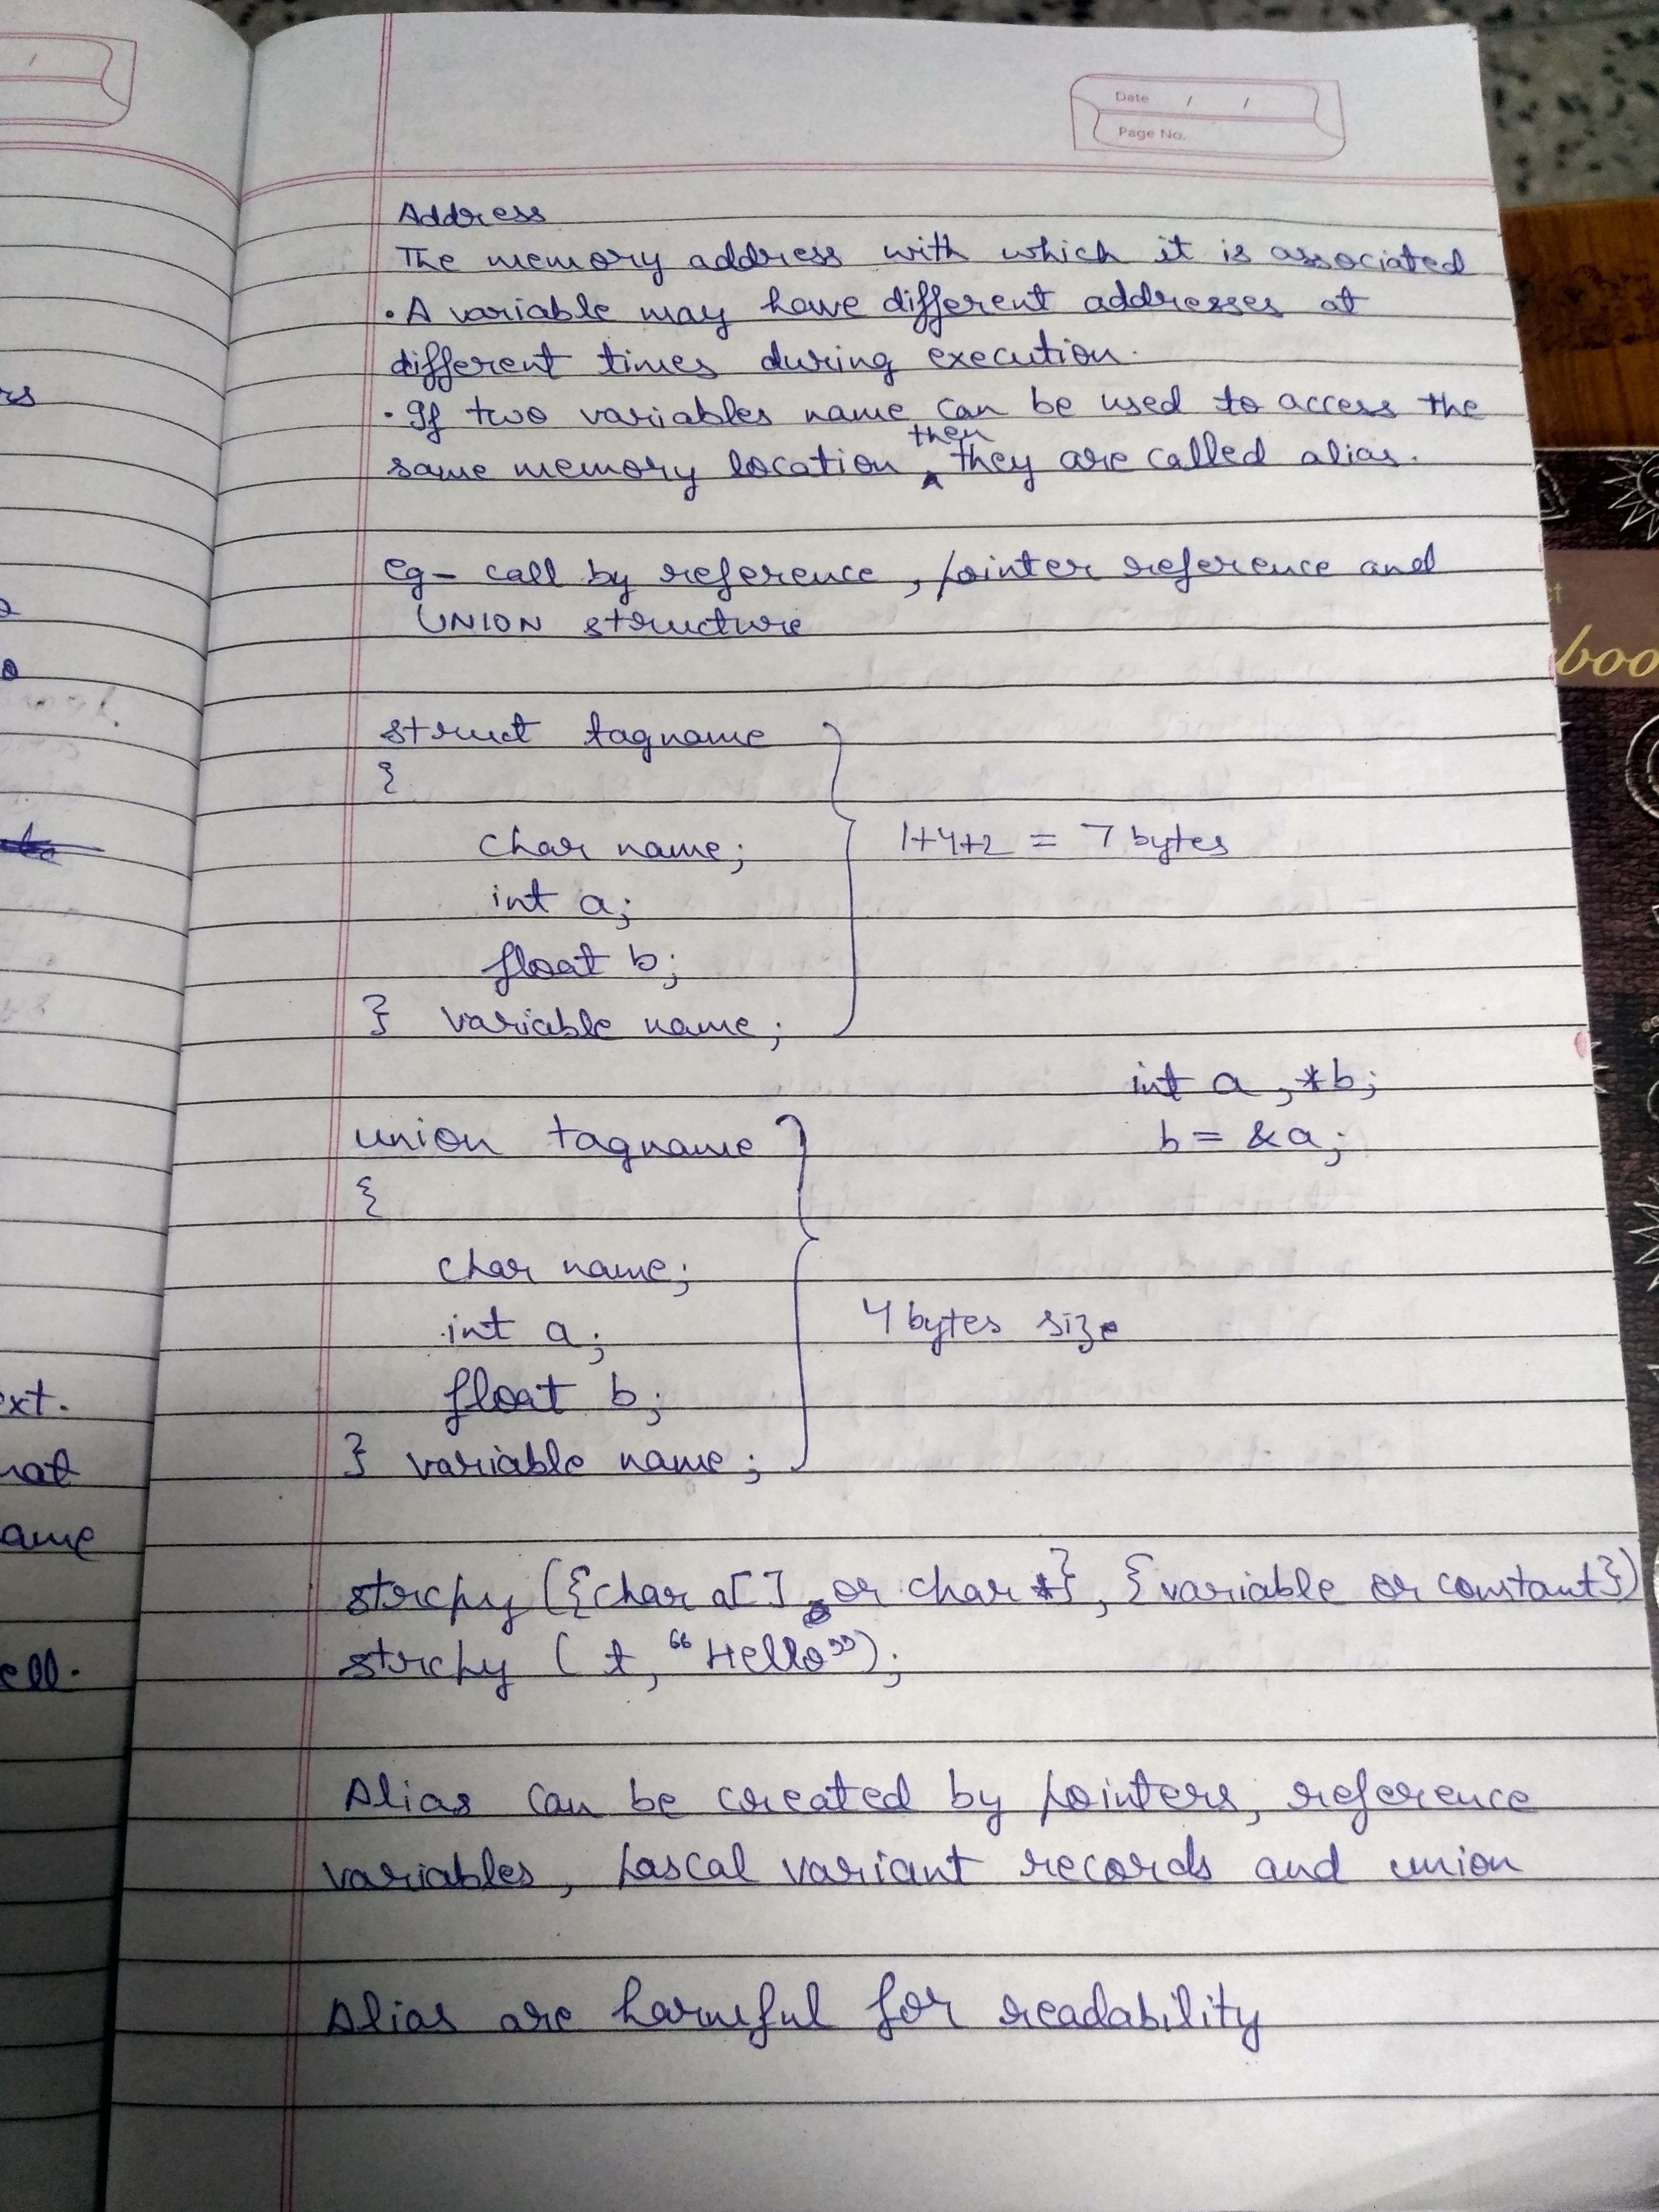 Date / /
Page No.
Address
The memory address with which it is associated
• A variable may have different addresses at
different times during execution.
• If two variables name can be used to access the
same memory location then they are called alias.
eg - call by reference, pointer reference and
UNION structure
struct tagname
{
char name;
1+4+2 = 7 bytes
int a;
float b;
} variable name;
int a, *b;
union tagname
b = &a;
{
char name;
int a;
4 bytes size
float b;
} variable name;
strcpy ({char a[] or char *}, {variable or constant})
strcpy ( t, "Hello");
Alias can be created by pointers, reference
variables, pascal variant records and union
Alias are harmful for readability
rs
ext.
ame
ell.
boo